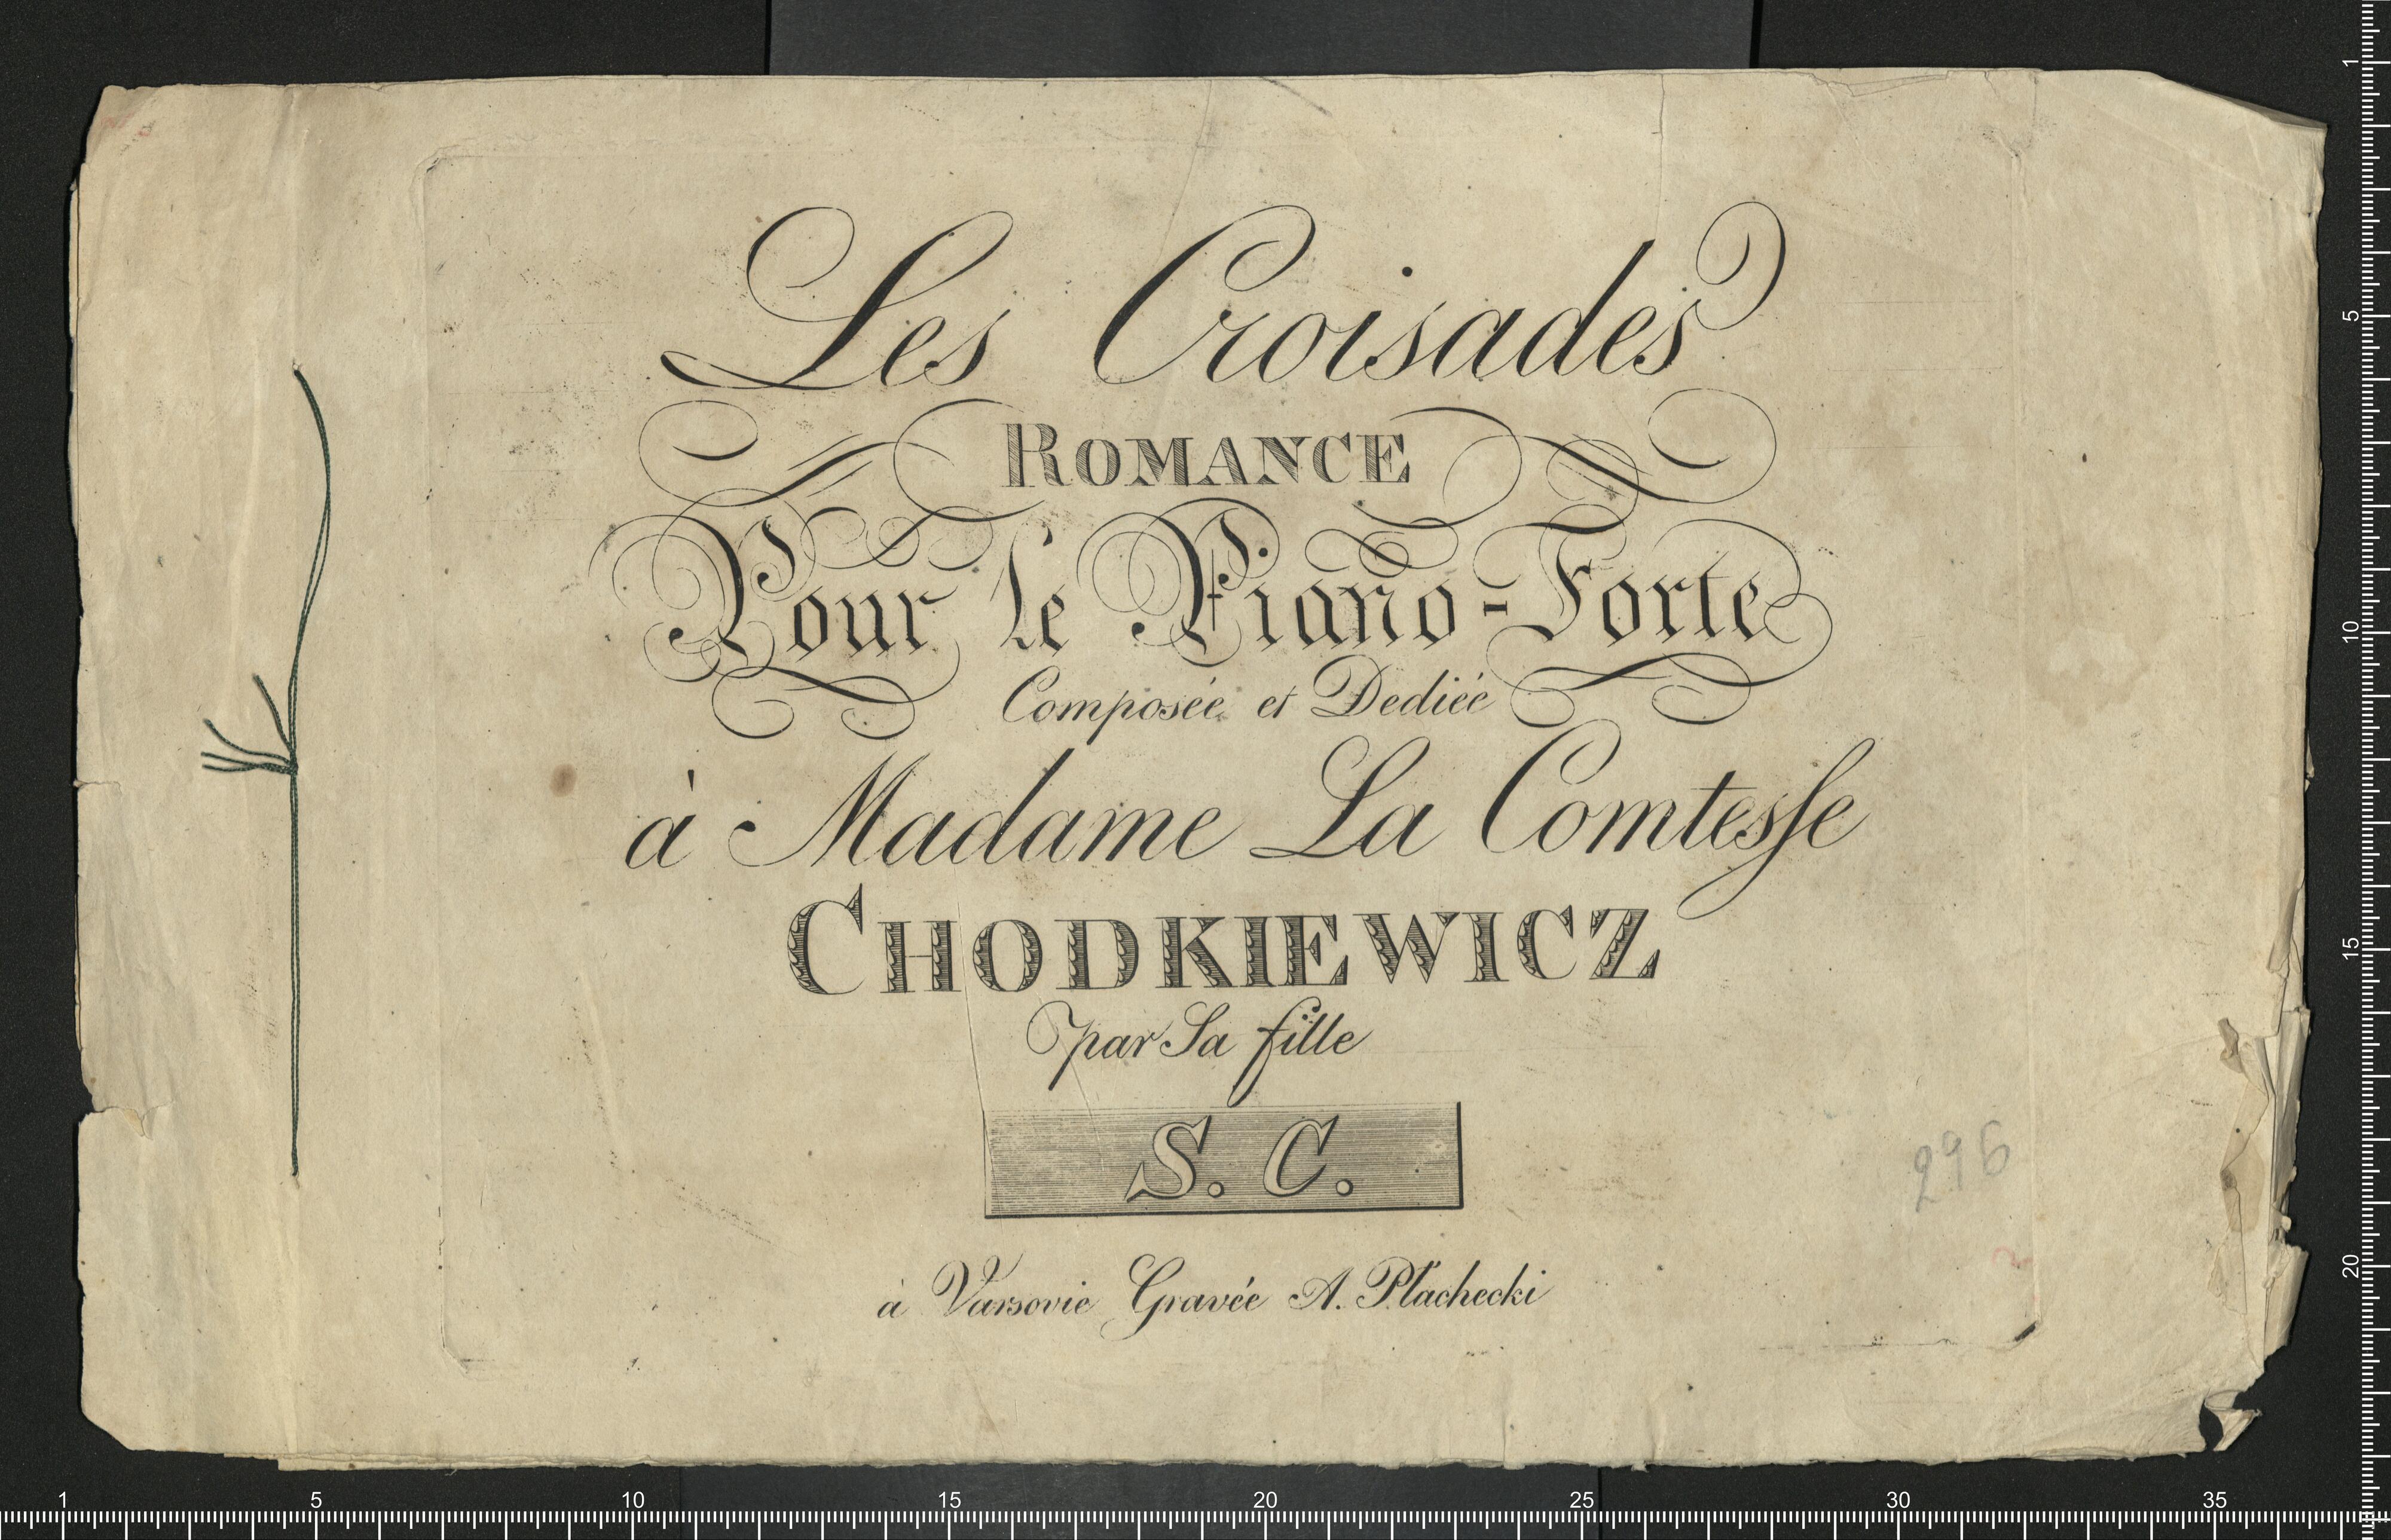 Les Croisades
ROMANCE
Pour le Piano-Forte
Composée et Dediée
à Madame La Comtesse
CHODKIEWICZ
par Sa fille
S. C.
à Varsovie Gravée A. Płachecki
296
1
5
10
15
20
1 5 10 15 20 25 30 35